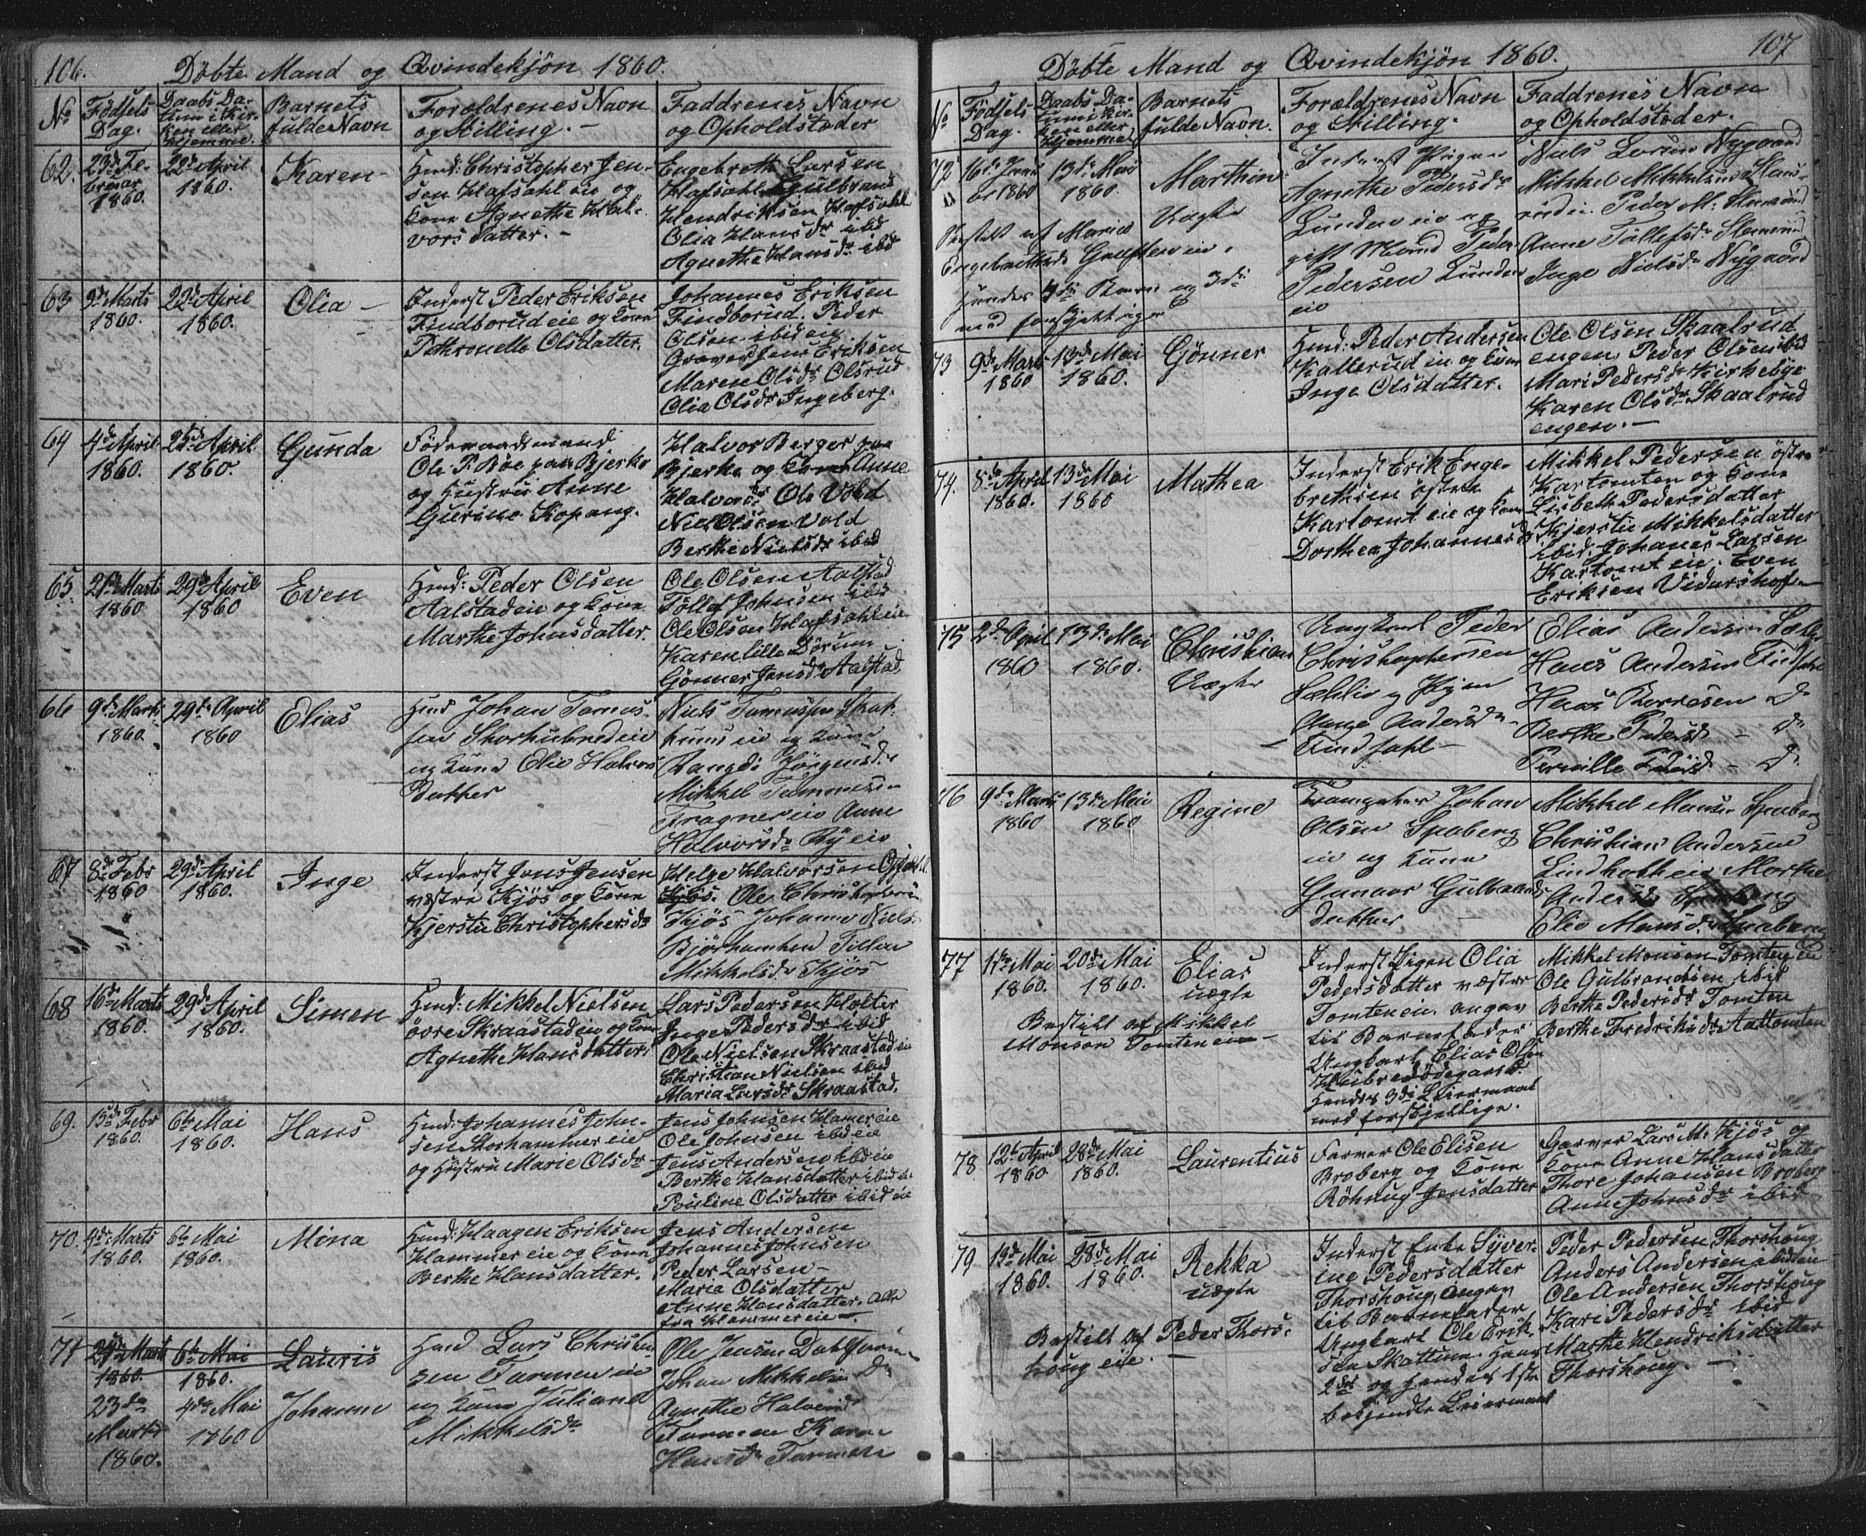 106.
Döbte Mand og Qvindekjön 1860.
No Födsels Dag. Daabs Datum i Kirken eller Hjemme. Barnets fulde Navn Forældrenes Navn og Stilling. Faddrenes Navn og Opholdsteder
62. 23de Februar 1860. 22de April 1860. Karen
Hmd: Christopher Jensen Hafsahl eie og
Kone Agnethe Halvorsdatter.
Engebreth Larsen
Hafsahl Gulbrand
Hendriksen Hafsahl
Olia Hansdr ibd
Agnethe Hansdr ibd
63 9de Marts 1860. 22de April 1860. Olia
Inderst Peder Eriksen
Findborud eie og Kone
Pethronelle Olsdatter.
Johannes Eriksen
Findborud. Peder
Olsen ibid en
Graver Jens Eriksen
Maren Olsdr Olsrud
Olia Olsdr Ingeberg.
64 4de April 1860. 25de April 1860. Gunda
Föderaadsmand
Ole P. Böe paa Bjerke
og Hustru Anne
Gurine Kopang.
Halvor Berger paa
Bjerke og Kone Anne
Halvorsdr Ole Vold
Niels Olsen Vold
Berthe Nielsdr ibid
65 21de Marts 1860. 29de April 1860 Even
Hmd: Peder Olsen
Aalstad eie og Kone
Marthe Johnsdatter.
Ole Olsen Aalstad
Töllef Johnsen ibid
Ole Olsen Hafsahl eie
Karen lille Dörum
Gönner Jensdr Aalstad
66 9de Marts 1860. 29de April 1860 Elias
Hmd Johan Tomassen
og Kone Olie Halvorsdatter
Niels Tomassen
eie og Kone
Jörgensdr
Mikkel Tommesen
Fragner eie Anne
Halvorsdr Bÿ eie
67 8de Febr 1860 29de April 1860. Inge
Inderst Jens Jensen
vestre Kjös og Kone
Kjersti Christophersdr
Helge Halvorsen
Kjös. Ole Christophersen
Kjös Johanne Niels
Mikkelsdr Kjös
68 16de Marts 1860. 29de April 1860. Simen
Hmd: Mikkel Nielsen
övre Skraastad eie og Kone
Agnethe Hansdatter.
Lars Pedersen Holter
Inge Pedersdr ibid
Ole Nielsen Skraastad eie
Christian Nielsen ibid
Maria Larsdr Skraastad.
69. 15de Febr 1860. 6te Mai 1860. Hans
Hmd: Johannes Johnsen Storhammer eie
og Hustru Marie Olsdr
Jens Johnsen Hamer eie
Ole Johnsen ibd eie
Jens Andersen ibd eie
Berthe Hansdatter ibid
Pouline Olsdatter ibid eie
70. 4de Marts 1860. 6te Mai 1860. Mina
Hmd: Haagen Eriksen
Hammer eie og Kone
Berthe Hansdatter.
Jens Andersen
Johannes Johnsen
Peder Larsen
Marie Olsdatter
Anne Hansdatter. Alle
fra Hammer eie
71 27de Marts 1860. 6te Mai 1860. Lauris
23de Marts 1860. 4de Mai 1860 Johanne
Hmd Lars Christensen Farmen eie
og Kone Juliane
Mikkelsdr
Ole Jensen Dahlfarmen
Johan Mikkelsen Do
Agnethe Halvorsdr
Farmen Karen
Hansdr Farmen
107
Döbte Mand og Qvindekjön 1860.
No Födsels Dag. Daabs Datum i Kirken eller Hjemme. Barnets fulde Navn. Forældrenes Navn og Stilling. Faddrenes Navn og Opholdsteder.
72 16de Januar 1860 13de Mai 1860. Marthin Uægte
Inderst Pigen
Agnethe Pedersdr
Lunden eie og
gift Mand Peder
Pedersen Lunden
eie
Niels Larsen Nygaard
Mikkel Mikkelsen
Peder M.
Anne Töllefsdr
Inge Nielsdr Nygaard
Anmeldt af Marie
Engebrethsdr
hendes 3die Barn og 3die
med forskjellige
73 9de Marts 1860 13de Mai 1860. Gönner
Hmd: Peder Andersen
Kallerud eie og Kone
Inge Olsdatter.
Ole Olsen Skaalrud
engen, Peder Olsen ibid
Mari Pedersdr Kirkebye
Karen Olsdr Skaalrud
engen.
74. 8de April 1860. 13de Mai 1860 Mathea
Inderst Erik Engebrethsen östre
Kartomt eie og Kone
Dorthea Johannesd
Mikkel Pedersen östre
Kartomten og Kone
Lisbeth Pedersdatter
Kjerstie Mikkelsdatter
ibid. Johanes Larsen
Kartomt eie. Even
Eriksen Vidarshof
75 2de April 1860 13de Mai 1860. Christian Uægte
Ungkarl Peder
Christophersen
Sæhlie og Pigen
Anne Andersdr
Findsahl
Elias Andersen Sæhlie
Hans Andersen Findsahl
Hans Borresen Do
Berthe Pedersdr Do
Pernille Do
76 9de Marts 1860 13de Mai 1860 Regine
Johan
Olsen Spaberg
eie og Kone
Gunnor Gulbrandsdatter
Mikkel Monsen Spaberg
Christian Andersen
Lindholt eie Marthe
Andersdr Spaberg
Elie Monsdr Spaberg
77 1ste Mai 1860. 20de Mai 1860. Elias uægte
Inderst Pigen Olia
Pedersdatter vestre
Tomten eie. angav
til Barnefader
Ungkarl Elias Olsen
Hubredödegaard
Hendes 3die Leiermaal
med forskjellige.
Mikkel Monsen Tomten eie
Ole Gulbrandsen ibid
Berthe Pedersdr Tomten
Berthe Fredriksdr Aattomten
Bestilt af Mikkel
Monsen Tomten eie
78 12te April 1860 28de Mai 1860. Laurentius
Farver Ole Elisen
Broberg og Kone
Röhnug Jensdatter
Garver Lars M. Kjös og
Kone Anne Hansdatter
Thore Johansen Broberg
Anne Johnsdr ibid
79 12de Mai 1860. 28de Mai 1860. Rekka uægte
Inderst Enke Syverine Pedersdatter
Thorshoug, angav
til Barnefader
Ungkarl Ole Eriksen Skattum. Hans
2det og hendes 1ste
besjendte Leiermaal
Peder Pedersen Thorshoug
Anders Andersen ibid eie
Ole Andersen Thorshoug
Kari Pedersdr ibid
Marthe Hendriksdatter
Thorshoug.
Bestilt af Peder Thorshoug eie.